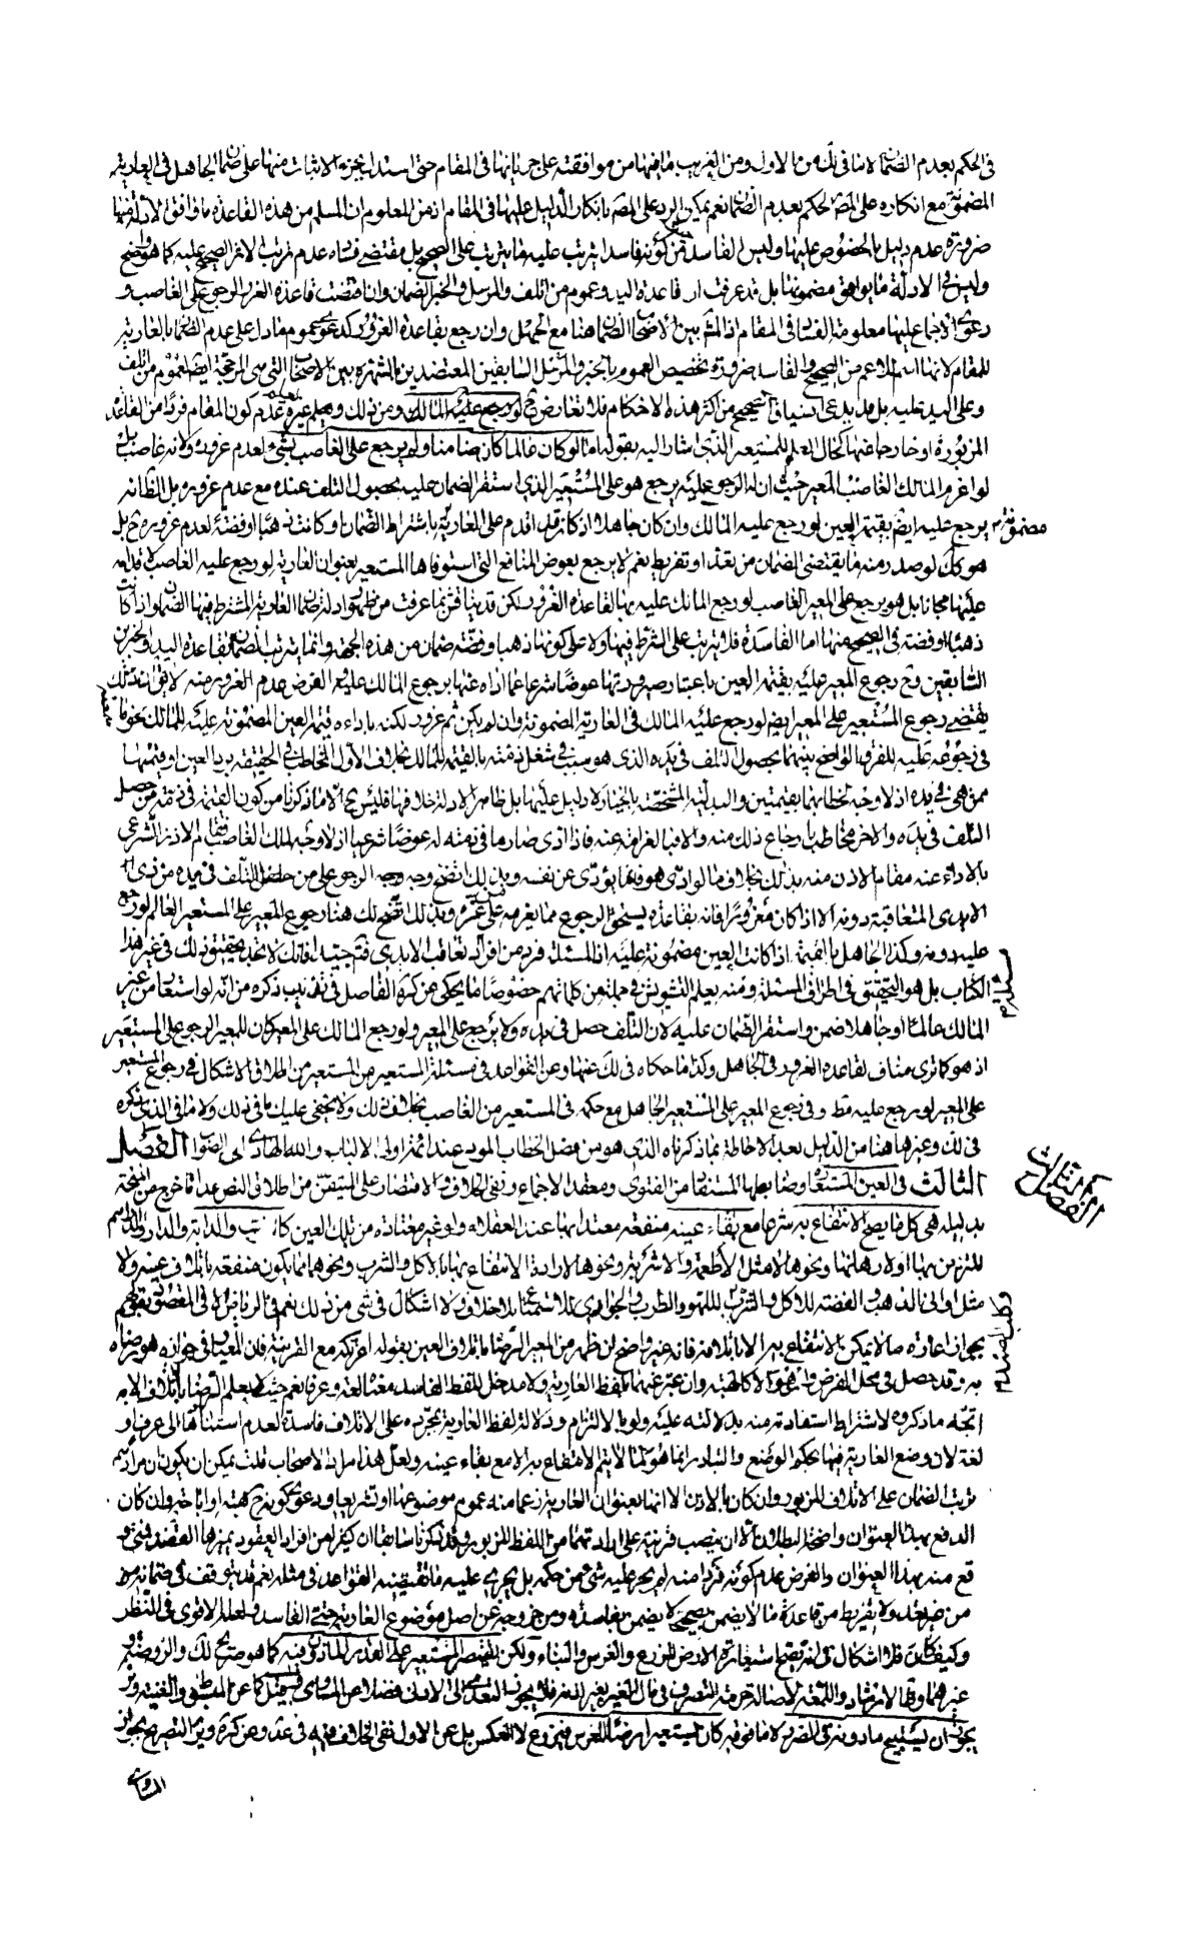 في الحكم بعدم الضمان لا ما في لك من الاول ومن الغريب ما فيها من موافقته على جريانها في المقام حتى استدل بجزء الاثبات منها على ضمان الجاهل في العارية
المضمونة مع انكاره على المص الحكم بعدم الضمان نعم يمكن الرد على المص بانكار الدليل عليها في المقام اذ من المعلوم ان المسلم من هذه القاعدة ما وافق الادلة منها
ضرورة عدم دليل بالخصوص عليها وليس الفاسد من كونه فاسدا يترتب عليه ما يترتب على الصحيح بل مقتضى فساده عدم ترتب الاثر الصحيح عليه كما هو واضح
وليس في الادلة ما يوافق مضمونها بل قد عرفت ان قاعدة اليد وعموم من اتلف والمرسل والخبر الضمان وان اقتضت قاعدة الغرور الرجوع على الغاصب و
دعوى الاجماع عليها معلومة الفساد في المقام اذ المش بين الاصحاب الضمان هنا مع الجهل وان رجع بقاعدة الغرور كدعوى عموم ما دل على عدم الضمان بالعارية
للمقام لانها اسم للاعم من الصحيح والفاسد ضرورة تخصيص العموم بالخبر والمرسل السابقين المعتضدين بالشهرة بين الاصحاب التي هي المرجحة ايضا لعموم من اتلف
وعلى اليد عليه بل قد يدعى انسياق الصحيح من اكثر هذه الاحكام فلا تعارض ح لو رجع عليه المالك ومن ذلك وعلم غيره عدم كون المقام فردا من القاعدة
المزبورة او خارجا عنها كحال العلم للمستعير الذي اشار اليه بقوله اما لو كان عالما كان ضامنا ولم يرجع على الغاصب بشيء لعدم غروره ولانه غاصب بل
لو اغرم المالك الغاصب المعير حيث ان له الرجوع عليه يرجع هو على المستعير الذي استقر الضمان عليه بحصول التلف عنده مع عدم غروره بل الظ انه
يرجع عليه ايضا بقيمة العين لو رجع عليه المالك وان كان جاهلا اذ كان قد اقدم على العارية باشتراط الضمان او كانت ذهبا او فضة لعدم غروره ح بل
هو كك لو صدر منه ما يقتضي الضمان من تعد او تفريط نعم لا يرجع بعوض المنافع التي استوفاها المستعير بعنوان العارية لو رجع عليه الغاصب لاقدامه
عليها مجانا بل هو يرجع على المعير الغاصب لو رجع المالك عليه بها لقاعدة الغرور لكن قد يناقش بما عرفت من ظهور ادلة ضمان العارية المشترط فيها الضمان واذا كانت
ذهبا او فضة في الصحيح منها اما الفاسدة فلا يترتب على الشرط فيها ولا على كونها ذهبا وفضة ضمان من هذه الجهة وانما يترتب الضمان لقاعدة اليد والخبرين
السابقين وح رجوع المعير عليه بقيمة العين باعتبار صيرورتها عوضا شرعا عما اداه عنها برجوع المالك عليه والفرض عدم الغرور منه لا يق ان ذلك
يقتضي رجوع المستعير على المعير ايضا لو رجع عليه المالك في العارية المضمونة وان لم يكن ثم غرور لكنه باداءه قيمة العين المضمونة عليه للمالك نحو ما
في رجوعه عليه للفرق الواضح بينهما بحصول التلف في يده الذي هو سبب في شغل ذمته بالقيمة للمالك بخلاف الاول المخاطب في الحقيقة برد العين او قيمتها
ممن هي في يده اذ لا وجه لخطابهما بقيمتين والبدلية المشخصة باختياره لا دليل عليها بل ظاهر الادلة خلافها فليس ح الا ما ذكرنا من كون القيمة في ذمة من حصل
التلف في يده والاخر مخاطب بارجاع ذلك منه والا فبالغرامة عنه فاذا ادى صار ما في ذمته له عوضا شرعيا اذ لا وجه لملك الغاصب فيقام الاذن الشرعي
بالاداء عنه مقام الاذن منه بذلك بخلاف ما لو ادى هو فانما يؤدي عن نفسه وبذلك اتضح وجه الرجوع على من حصل التلف في يده من ذي
الايدي المتعاقبة دونه الا اذا كان مغرورا فانه بقاعدته يستحق الرجوع مما يغرمه على من غره وبذلك اتضح لك هنا رجوع المعير على المستعير العالم لو رجع
عليه دونه وكذا الجاهل بالقيمة اذا كانت العين مضمونة عليه اذ المسئلة فرد من افراد تعاقب الايدي فتامل جيدا فانك لا تجد تحقيق ذلك في غير هذا
الكتاب بل هو التحقيق في اطراف المسئلة ومنه يعلم التشويش في جملة من كلماتهم خصوصا ما يحكى عن كره الفاضل في تذنيب ذكره من انه لو استعار من غير
المالك عالما او جاهلا ضمن واستقر الضمان عليه لان التلف حصل في يده ولا يرجع على المعير ولو رجع المالك على المعير كان للمعير الرجوع على المستعير
اذ هو كما ترى مناف لقاعدة الغرور في الجاهل وكذا ما حكاه في لك عنها وعن القواعد في مسئلة المستعير من المستعير من اطلاق الاشكال في رجوع المستعير
على المعير لو رجع عليه فقط وفي رجوع المعير على المستعير الجاهل مع حكمه في المستعير من الغاصب بخلاف ذلك ولا يخفى عليك ما في ذلك ولا ما في الذي ذكره
في لك وغيرها هنا من الذيل بعد الاحاطة بما ذكرناه الذي هو من فضل الخطاب المودع عند ائمة اولي الالباب والله الهادي الى الصواب الفصل
الثالث في العين المستعارة وضابطها المستفاد من الفتوى ومعقد الاجماع ونفي الخلاف والاقتصار على المتيقن من اطلاق النص عدا ما خرج من المنحة
بدليله هي كل ما يصح الانتفاع به شرعا مع بقاء عينه منفعة معتدا بها عند العقلاء ولو غير معتادة من تلك العين كالثوب والدابة والدار والدراهم
للتزين بها او لارهانها ونحوها لا مثل الاطعمة والاشربة ونحوها لارادة الانتفاع بها بالاكل والشرب ونحوهما مما يكون منفعته باتلاف عينه ولا
مثل اواني الذهب والفضة للاكل والشرب للهو والطرب والجواري للاستمتاع بلا خلاف ولا اشكال في شيء من ذلك نعم في الرياض
بجواز اعارة ما لا يمكن الانتفاع به الا باتلافه فانه غير واضح لو ظهر من المعير الرضا باتلاف العين بقوله اعرتكه مع القرينة فان المعيار في جوازه هو رضاه
به وقد حصل في محل الفرض وان هو الا كالهبة وان عبر عنها بلفظ العارية ولا مدخل للفظ الفاسد معناه لغة وعرفا نعم حيث لم يعلم الرضا باتلاف الا به
اتجه ما ذكروه لاشتراط استفادته منه بدلالته عليه ولو بالالتزام ودلالة لفظ العارية بمجرده على الاتلاف فاسدة لعدم استنادها الى عرف او
لغة لان وضع العارية فيها بحكم الوضع والتبادر انما هو لما لا يتم الانتفاع به الا مع بقاء عينه ولعل هذا مراد الاصحاب قلت يمكن ان يكون مرادهم
ترتب الضمان على الاتلاف المزبور وان كان بالاذن لا انما بعنوان العارية زعما منه عموم موضوعها او تشريعا ودعوى كونه ح كهبته او اباحته وان كان
الدفع بهذا العنوان واضحة البطلان الا ان ينصب قرينة على ارادتهما من اللفظ المزبور وقد ذكرنا سابقا ان كثيرا من افراد العقود يميزها القصد فمتى و
قع منه بهذا العنوان والفرض عدم كونه فردا منه لم يجر عليه شيء من حكمه بل يجري عليه ما تقتضيه القواعد في مثله نعم قد يتوقف في ضمانه
من غير تعد ولا تفريط من قاعدة ما لا يضمن بصحيحه لا يضمن بفاسده ومن خروجه عن اصل موضوع العارية حتى الفاسد ولعله الاقوى في النظر
وكيف كان فلا اشكال في انه يصح استعارة الارض للزرع والغرس والبناء ولكن يقتصر المستعير على القدر الماذون فيه كما هو صريح لك والروضة و
غيرهما وقيل الارشاد واللمعة لاصالة حرمة التصرف في مال الغير بغير اذنه فلا يجوز التعدي الى الادنى فضلا عن المساوي وقيل كما عن المبسوط والغنية و
يجوز ان يستبيح ما دونه في الضرر لا ما فوقه كان يستعير ارضا للغرس فيزرع لا العكس بل عن الاول نفي الخلاف فيه في عنه وعن كره وير التصريح بجواز
المساوي
الفصل الثالث